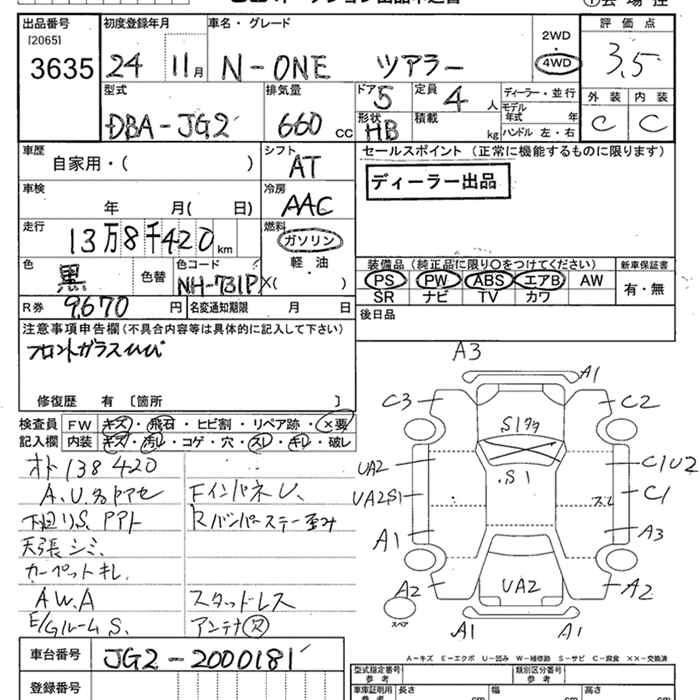 出品番号 初度登録年月 車名・グレード 2WD 評価点
[2065]
3635 24 11月 N-ONE ツアラー 4WD 3.5
型式 排気量 ドア 5 定員 4人 ディーラー・並行 外装 内装
モデル年式 年
DBA-JG2 660 CC 形状 HB 積載 kg ハンドル 左・右 C C
車歴 シフト セールスポイント (正常に機能するものに限ります)
自家用・( ) AT ディーラー出品
車検 冷房
年 月( 日) AAC
走行 燃料
13万8千420km ガソリン
軽・油
色 色コード 装備品 (純正品に限り○をつけてください) 新車保証書
黒 色替 NH-731P X( ) PS PW ABS エアB AW 有・無
SR ナビ TV カワ
R券 9,670円 名変通知期限 月 日 後日品
注意事項申告欄(不具合内容等は具体的に記入して下さい)
フロントガラスひび
修復歴 有 〔箇所 〕
検査員 FW キズ・飛石・ヒビ割・リペア跡・×要
記入欄 内装 キズ・汚レ・コゲ・穴・スレ・キレ・破レ
オド 138420
A.U.名
下廻りS.
天張シミ.
カーペットキレ.
A.W.A
E/GルームS.
Fインパネ
Rバンパーステー歪み
スタッドレス
アンテナ欠
A3
A1
C3 C2
S1
.S1
UA2 C1U2
UA2S1 C1
スレ
A1 A3
A2 UA2 A2
スペア
A1 A1
車台番号 JG2-2000181
登録番号
A-キズ E-エクボ U-凹み W-補修跡 S-サビ C-腐食 XX-交換済
型式指定番号 参考 類別区分番号 参考
車庫証明用 参考 長さ cm 幅 cm 高さ cm